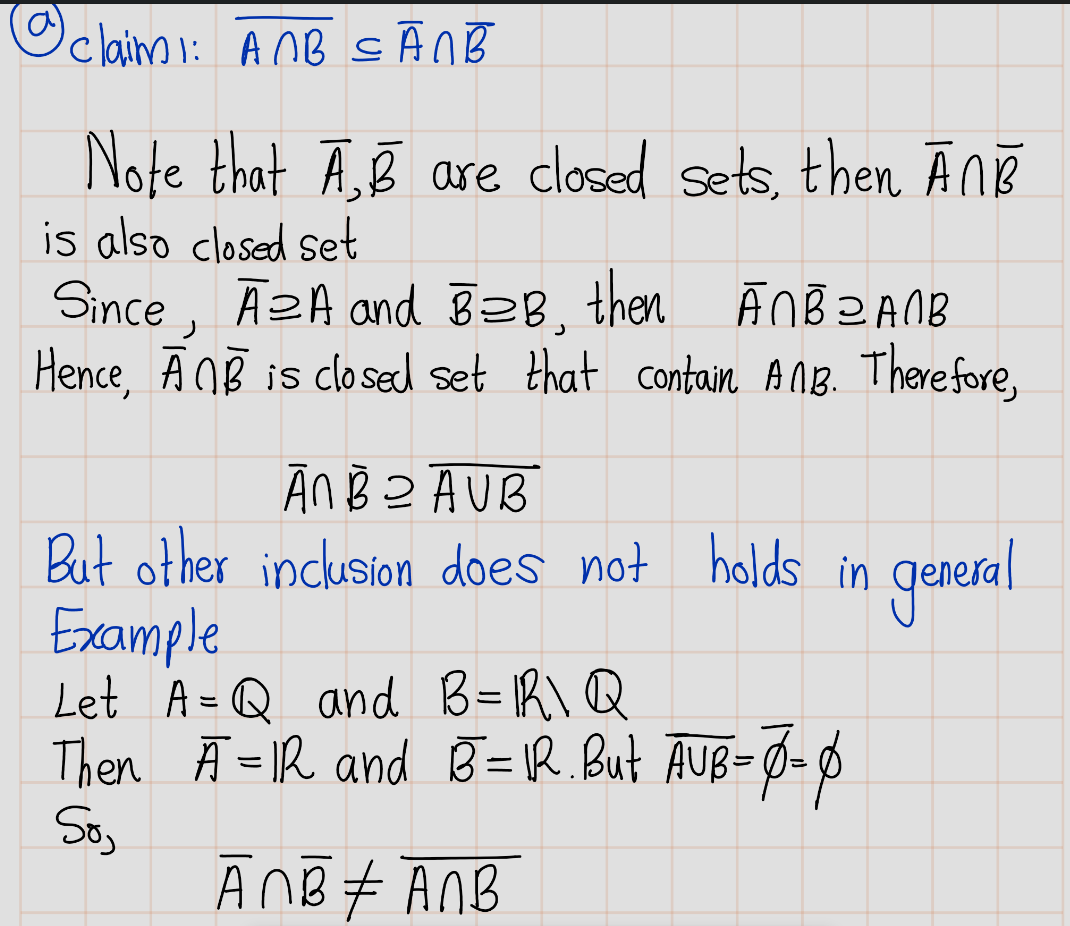 ⓐ claim 1: $\overline{A \cap B} \subseteq \bar{A} \cap \bar{B}$
Note that $\bar{A}, \bar{B}$ are closed sets, then $\bar{A} \cap \bar{B}$
is also closed set
Since, $\bar{A} \supseteq A$ and $\bar{B} \supseteq B$, then $\bar{A} \cap \bar{B} \supseteq A \cap B$
Hence, $\bar{A} \cap \bar{B}$ is closed set that contain $A \cap B$. Therefore,
$\bar{A} \cap \bar{B} \supseteq \overline{A \cup B}$
But other inclusion does not holds in general
Example
Let $A = \mathbb{Q}$ and $B = \mathbb{R} \setminus \mathbb{Q}$
Then $\bar{A} = \mathbb{R}$ and $\bar{B} = \mathbb{R}$. But $\overline{A \cup B} = \overline{\phi} = \phi$
So,
$\bar{A} \cap \bar{B} \neq \overline{A \cap B}$